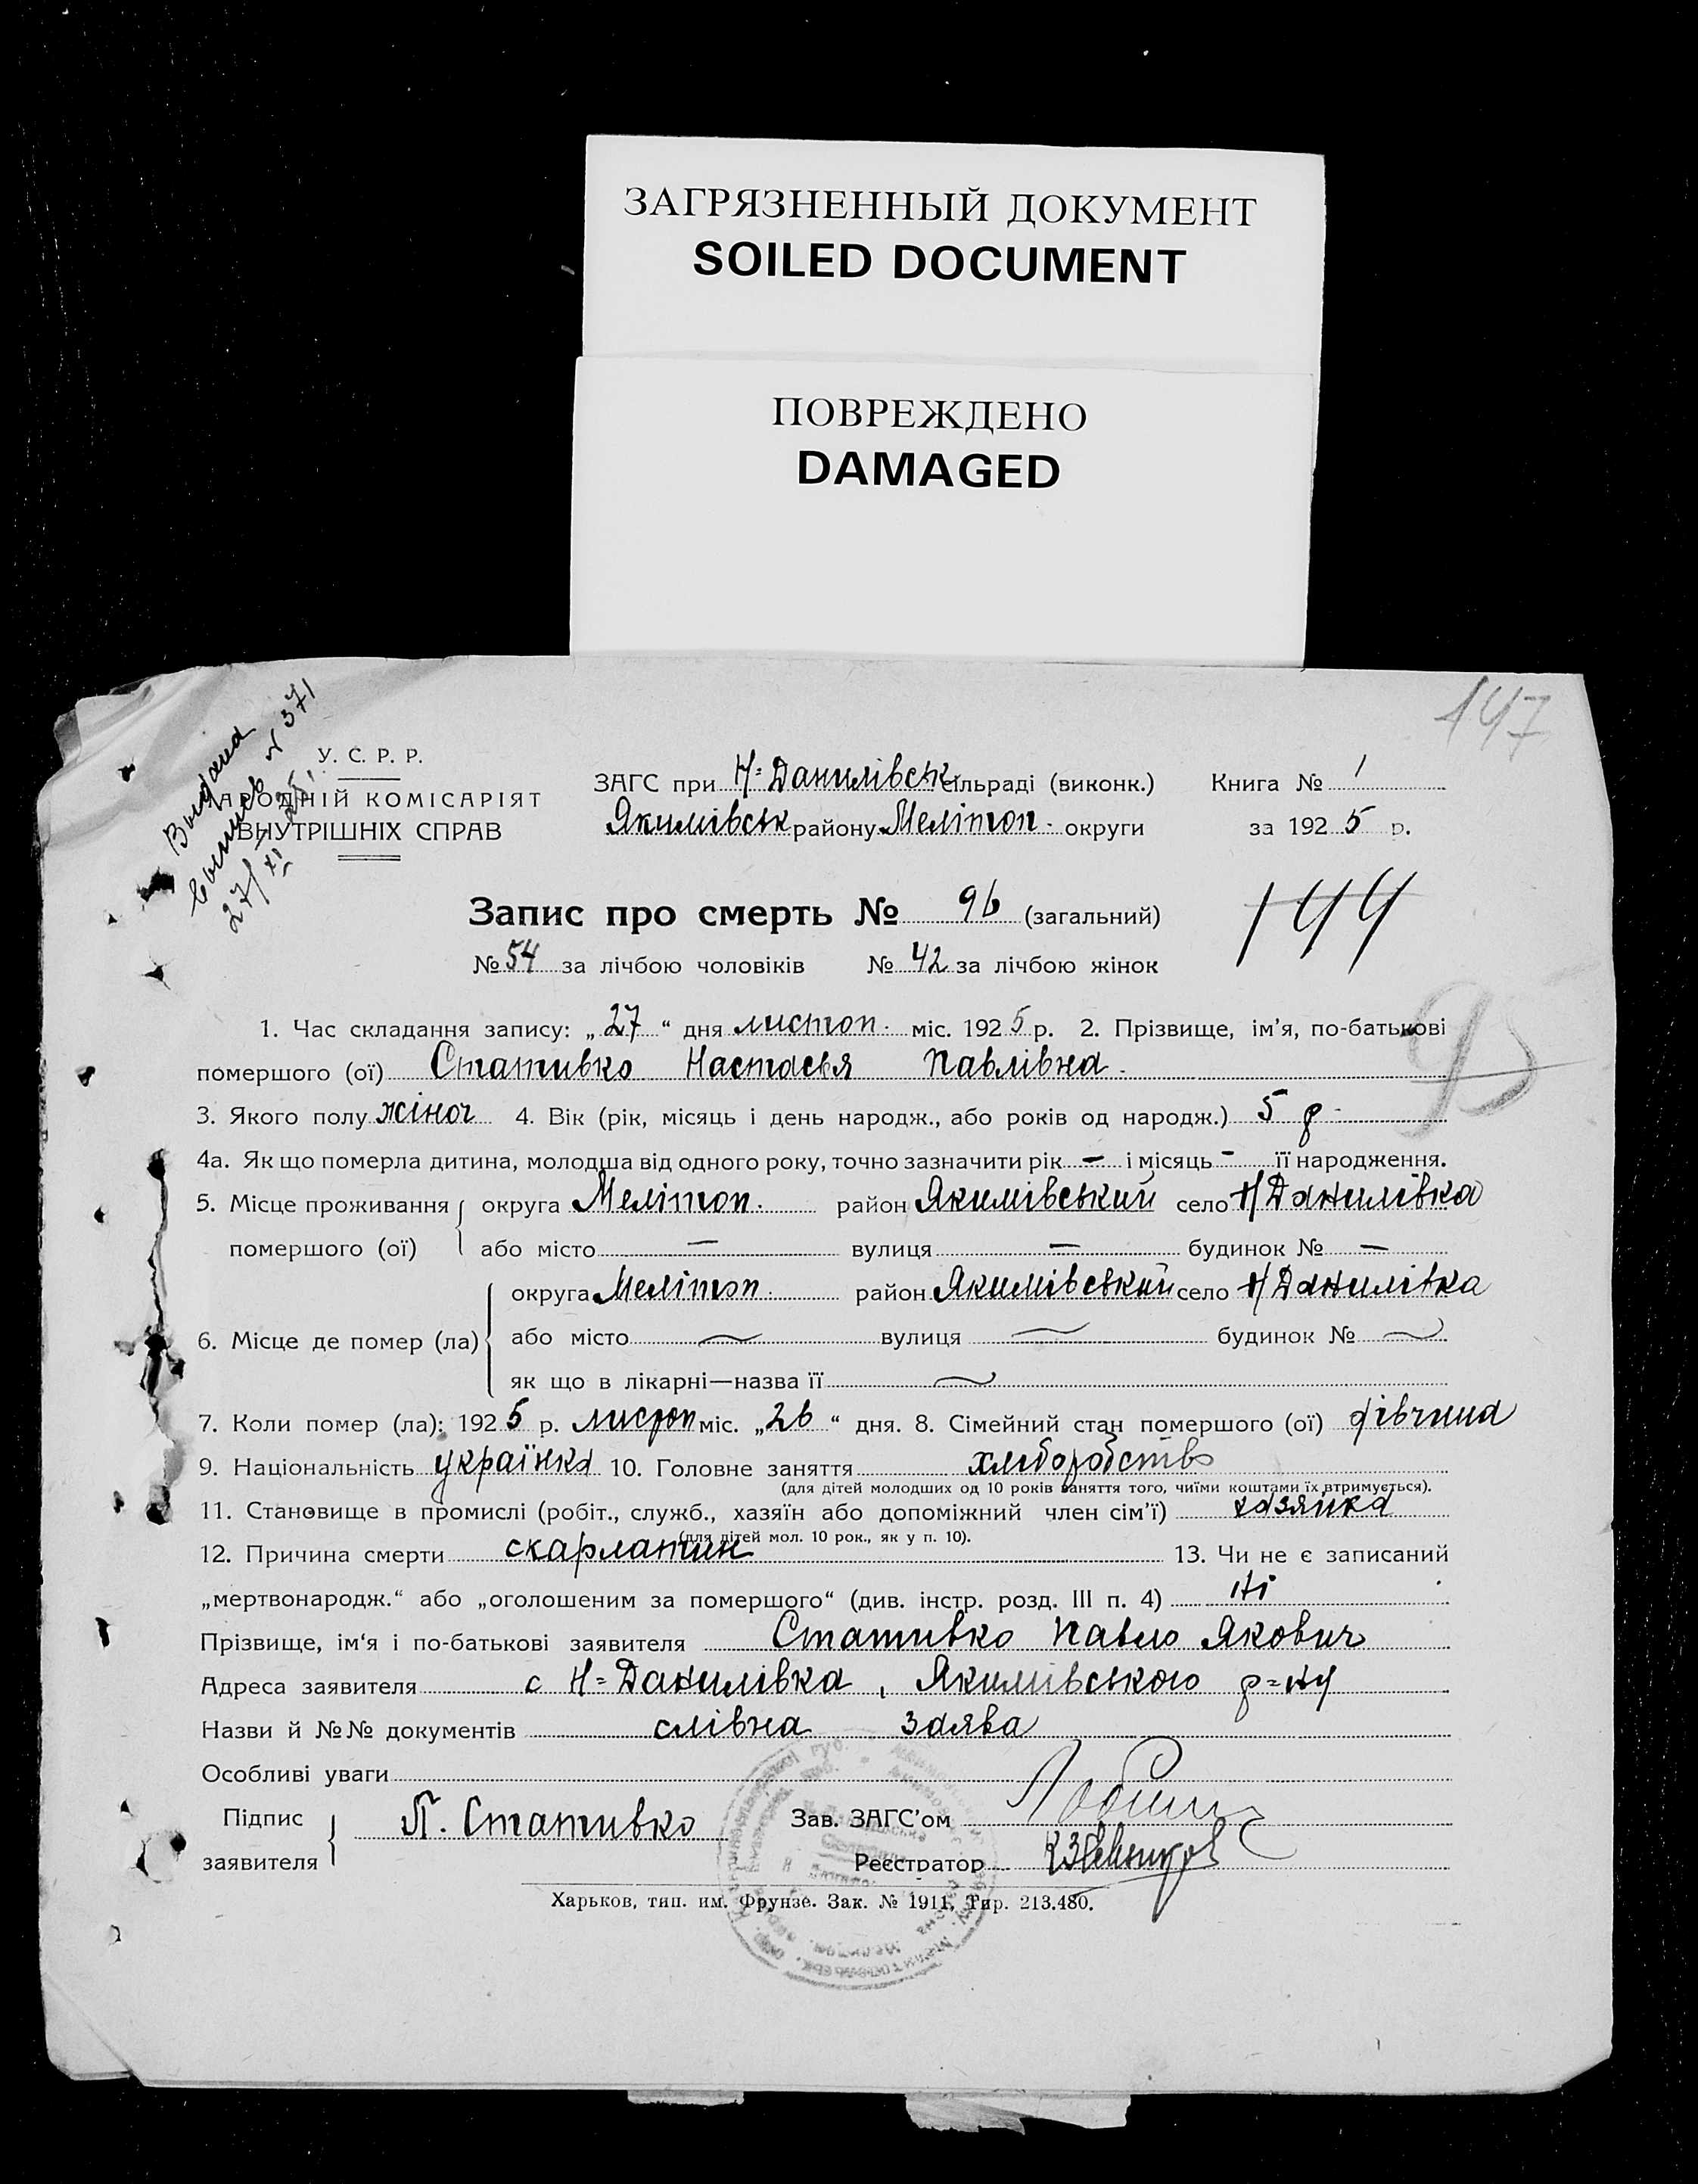 ЗАГРЯЗНЕННЫЙ ДОКУМЕНТ
SOILED DOCUMENT
ПОВРЕЖДЕНО
DAMAGED
147
Видана
выпись № 371
27/XI 25.
У. С. Р. Р.
НАРОДНІЙ КОМІСАРІЯТ
ВНУТРІШНІХ СПРАВ
ЗАГС при Н=Данилівськ сільраді (виконк.) Книга № 1
Якимівськ району Мелітоп. округи за 1925 р.
Запис про смерть № 96 (загальний)
144
№ 54 за лічбою чоловіків № 42 за лічбою жінок
95
1. Час складання запису: „27“ дня листоп. міс. 1925 р. 2. Прізвище, ім’я, по-батькові
помершого (ої) Стативко Настасья Павлівна.
3. Якого полу жіноч 4. Вік (рік, місяць і день народж., або років од народж.) 5 р.
4а. Як що померла дитина, молодша від одного року, точно зазначити рік — і місяць - її народження.
5. Місце проживання округа Мелітоп. район Якимівський село Н/Данилівка
помершого (ої) або місто — вулиця — будинок № —
округа Мелітоп. район Якимівський село Н/Данилівка
6. Місце де помер (ла) або місто вулиця будинок №
як що в лікарні—назва її
7. Коли помер (ла): 1925 р. листоп міс. „26“ дня. 8. Сімейний стан помершого (ої) дівчина
9. Національність українка 10. Головне заняття хліборобство
(для дітей молодших од 10 років заняття того, чиїми коштами їх втримується).
11. Становище в промислі (робіт., служб., хазяїн або допоміжний член сім’ї) хазяйка
(для дітей мол. 10 рок., як у п. 10).
12. Причина смерти скарлатин 13. Чи не є записаний
„мертвонародж.“ або „оголошеним за помершого“ (див. інстр. розд. III п. 4) Ні
Прізвище, ім‘я і по-батькові заявителя Стативко Павло Якович
Адреса заявителя с Н=Данилівка, Якимівського р=ну
Назви й №№ документів слівна заява
Особливі уваги
Підпис
заявителя П. Стативко Зав. ЗАГС’ом
Реєстратор
Харьков, тип. им. Фрунзе. Зак. № 1911, Тир. 213.480.